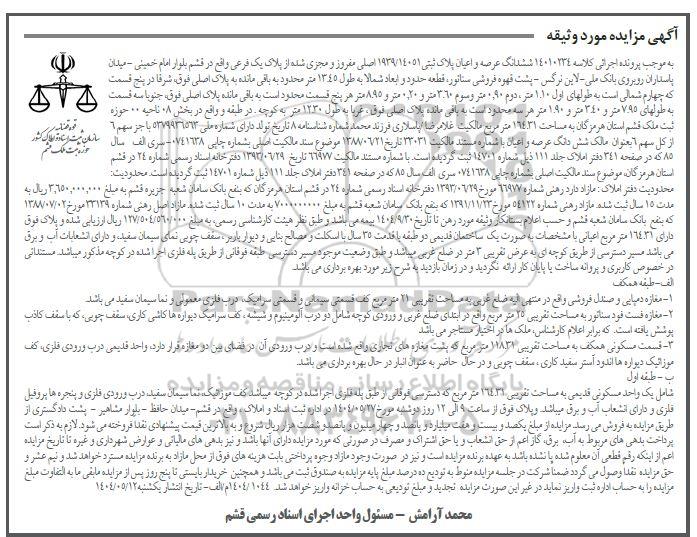 آگهی مزایده مورد وثیقه
قوه قضائیه
سازمان ثبت اسناد و املاک کشور
حوزه ثبت ملک قشم
به موجب پرونده اجرائی کلاسه ۱۴۰۱۰۲۳۴ ششدانگ عرصه و اعیان پلاک ثبتی ۱۹۳۹/۱۴۰۵۱ اصلی مفروز و مجزی شده از پلاک یک فرعی واقع در قشم بلوار امام خمینی - میدان
پاسداران روبروی بانک ملی-لاین نرگس - پشت قهوه فروشی سناتور، قطعه حدود و ابعاد شمالا به طول ۱۳.۴۵ متر محدود به باقی مانده به پلاک اصلی فوق، شرقا در پنج قسمت
که چهارم شمالی است به طولهای اول ۱.۱۰ متر، دوم ۰.۹۰ متر وسوم ۳.۶۰ متر و ۰.۲۰ متر و ۸.۹۵ متر هر پنج قسمت محدود است به باقی مانده پلاک اصلی فوق، جنوبا سه قسمت
به طولهای ۷.۹۵ متر و ۳.۴۰ متر و ۱.۹۰ متر هر سه حدود است به باقی مانده پلاک اصلی فوق، غربا به طول ۱۲.۳۰ متر به کوچه . در طبقه و واقع در بخش ۰۸ ناحیه ۰۰ حوزه
ثبت ملک قشم استان هرمزگان به مساحت ۱۶۴.۳۱ متر مربع مالکیت غلامرضا پاسلاری فرزند محمد شماره شناسنامه ۸ تاریخ تولد دارای شماره ملی ۵۳۷۹۹۳۶۵۶۳ با جز سهم ۶
از کل سهم ۶ بعنوان مالک شش دانگ عرصه و اعیان با شماره مستند مالکیت ۳۳۰۳۱ تاریخ ۱۳۸۸/۰۶/۲۱ موضوع سند مالکیت اصلی بشماره چاپی ۰۷۴۱۶۳۸ سری الف سال
۸۵ که در صفحه ۳۴۱ دفتر املاک جلد ۱۱۱ ذیل شماره ۱۴۷۰۱ ثبت گردیده است. با شماره مستند مالکیت ۶۶۹۷۷ تاریخ ۱۳۹۳/۰۶/۲۹ دفترخانه اسناد رسمی شماره ۲۴ در قشم
استان هرمزگان، موضوع سند مالکیت اصلی بشماره چاپی ۰۷۴۱۶۳۸ سری الف سال ۸۵ که در صفحه ۳۴۱ دفتر املاک جلد ۱۱۱ ذیل شماره ۱۴۷۰۱ ثبت گردیده است. محدودیت:
محدودیت دفتر املاک : مازاد دارد رهنی شماره ۶۶۹۷۷ مورخ ۱۳۹۳/۰۶/۲۹ دفترخانه اسناد رسمی شماره ۲۴ در قشم استان هرمزگان که بنفع بانک سامان شعبه جزیره قشم به مبلغ ۳,۶۵۰,۰۰۰,۰۰۰ ریال به
مدت ۱۵ سال ثبت شده. مازاد رهنی شماره ۵۴۱۲۲ مورخ ۱۳۹۱/۱۱/۲۳ که بنفع بانک سامان شعبه قشم به مبلغ ۷۰۰۰۰۰۰۰۰ به مدت ۱۰ سال ثبت شده. مازاد اصل رهنی شماره ۳۳۱۳۹ مورخ ۱۳۸۸/۰۷/۰۲
که بنفع بانک سامان شعبه قشم و حسب اعلام بستانکار وثیقه مورد رهن تا تاریخ ۱۴۰۴/۹/۳۰ بیمه می باشد و طبق نظر هیئت کارشناسی رسمی، به مبلغ ۱۲۷/۵۰۴/۵۶۰/۰۰۰ ریال ارزیابی شده و پلاک فوق
دارای ۱۶۴.۳۱ متر مربع اعیانی با مشخصات به صورت یک ساختمان قدیمی دو طبقه با قدمت ۳۵ سال با اسکلت و مصالح بنایی و دیوار باربر، سقف چوبی نمای سیمان سفید، و دارای انشعابات آب و برق
می باشد مسیر دسترسی از طریق کوچه ای به عرض تقریبی ۳ متر در ضلع غربی میباشد و طبق وضعیت موجود مسیر دسترسی طبقه فوقانی از طریق پله فلزی اجرا شده در کوچه مذکور میباشد. مستنداتی
در خصوص کاربری و پروانه ساخت یا پایان کار ارائه نگردید و در زمان بازدید به شرح زیر مورد بهره برداری می باشد.
الف-طبقه همکف
۱-مغازه دمپایی و صندل فروشی واقع در منتهی الیه ضلع غربی به مساحت تقریبی ۲۱ متر مربع کف قسمتی سیمانی و قسمتی سرامیک، درب فلزی معمولی و نما سیمان سفید می باشد.
۲-مغازه فست فود سناتور به مساحت تقریبی ۲۵ متر مربع واقع در ابتدای ضلع غربی و ورودی کوچه شامل دو درب آلومینیوم و شیشه ، کف سرامیک دیواره ها کاشی کاری، سقف چوبی، که با سقف کاذب
پوشش یافته است. که برابر اعلام کارشناس، ملک ها در اختیار مستاجر می باشد
۳-قسمت مسکونی همکف به مساحت تقریبی ۱۱۸.۳۱ متر مربع که پشت مغازه های تجاری واقع شده است و درب ورودی آن در فضای بین دو مغازه قرار دارد، واحد قدیمی درب ورودی فلزی، کف
موزائیک دیواره ها اندود آستر سفید کاری ، سقف چوبی و در حال حاضر به عنوان انبار در حال بهره برداری می باشد.
ب - طبقه اول
شامل یک واحد مسکونی قدیمی به مساحت تقریبی ۱۶۴.۳۱ متر مربع که دسترسی فوقانی از طبق پله فلزی اجرا شده در کوچه میباشد کف موزائیک، نما سیمان سفید، درب ورودی فلزی و پنجره ها پروفیل
فلزی و دارای انشعاب آب و برق میباشد. وپلاک فوق از ساعت ۹ الی ۱۲ روز دوشنبه مورخ ۱۴۰۴/۰۵/۲۷ در اداره ثبت اسناد و املاک، واقع در قشم- میدان حافظ - بلوار مشاهیر - پشت دادگستری از
طریق مزایده به فروش می رسد. مزایده از مبلغ یکصد و بیست و هفت میلیارد و پانصد و چهار میلیون و پانصد و شصت هزار ریال شروع و به بالاترین قیمت پیشنهادی نقدا فروخته می شود. لازم به ذکر است
پرداخت بدهی های مربوط به آب، برق، گاز اعم از حق انشعاب و یا حق اشتراک و مصرف در صورتی که مورد مزایده دارای آنها باشد و نیز بدهی های مالیاتی و عوارض شهرداری و غیره تا تاریخ مزایده
اعم از اینکه رقم قطعی آن معلوم شده یا نشده باشد به عهده برنده مزایده است و نیز در صورت وجود مازاد وجوه پرداختی بابت هزینه های فوق از محل مازاد به برنده مزایده مسترد خواهد شد و نیم عشر و
حق مزایده نقدا وصول می گردد ضمنا شرکت در جلسه مزایده منوط به تودیع ده درصد مبلغ پایه مزایده به صندوق ثبت می باشد و همچنین خریدار بایستی تا پنج روز پس از مزایده مابقی ما به التفاوت مبلغ
مزایده را به حساب اداره ثبت واریز نماید در غیر این صورت مزایده تجدید و مبلغ تودیعی به حساب خزانه واریز خواهد شد. ۱۴۰۴/۱۰۴۴م/الف- تاریخ انتشار یکشنبه ۱۴۰۴/۰۵/۱۲
محمد آرامش - مسئول واحد اجرای اسناد رسمی قشم